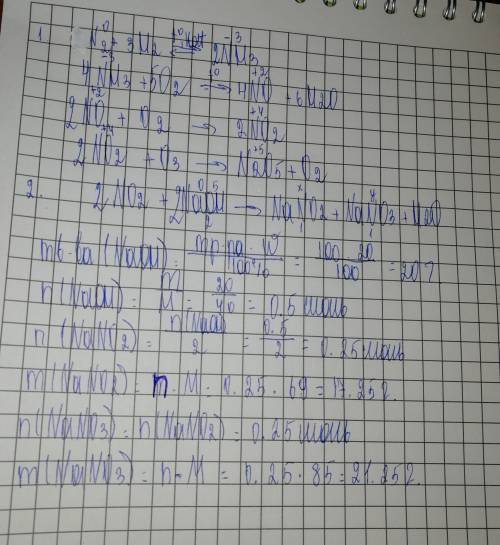 1 N2 + 3H2 ⇌ 2NH3
4NH3 + 5O2 → 4NO + 6H2O
2NO + O2 → 2NO2
2NO2 + O3 → N2O5 + O2
2. 2NO2 + 2NaOH → NaNO2 + NaNO3 + H2O
m б-ва (NaOH) = mр-ра · W / 100% = 100 · 20 / 100 = 20 г.
n(NaOH) = m / M = 20 / 40 = 0.5 моль
n(NaNO2) = n(NaOH) / 2 = 0.5 / 2 = 0.25 моль
m(NaNO2) = n · M = 0.25 · 69 = 17.25 г.
n(NaNO3) = n(NaNO2) = 0.25 моль
m(NaNO3) = n · M = 0.25 · 85 = 21.25 г.